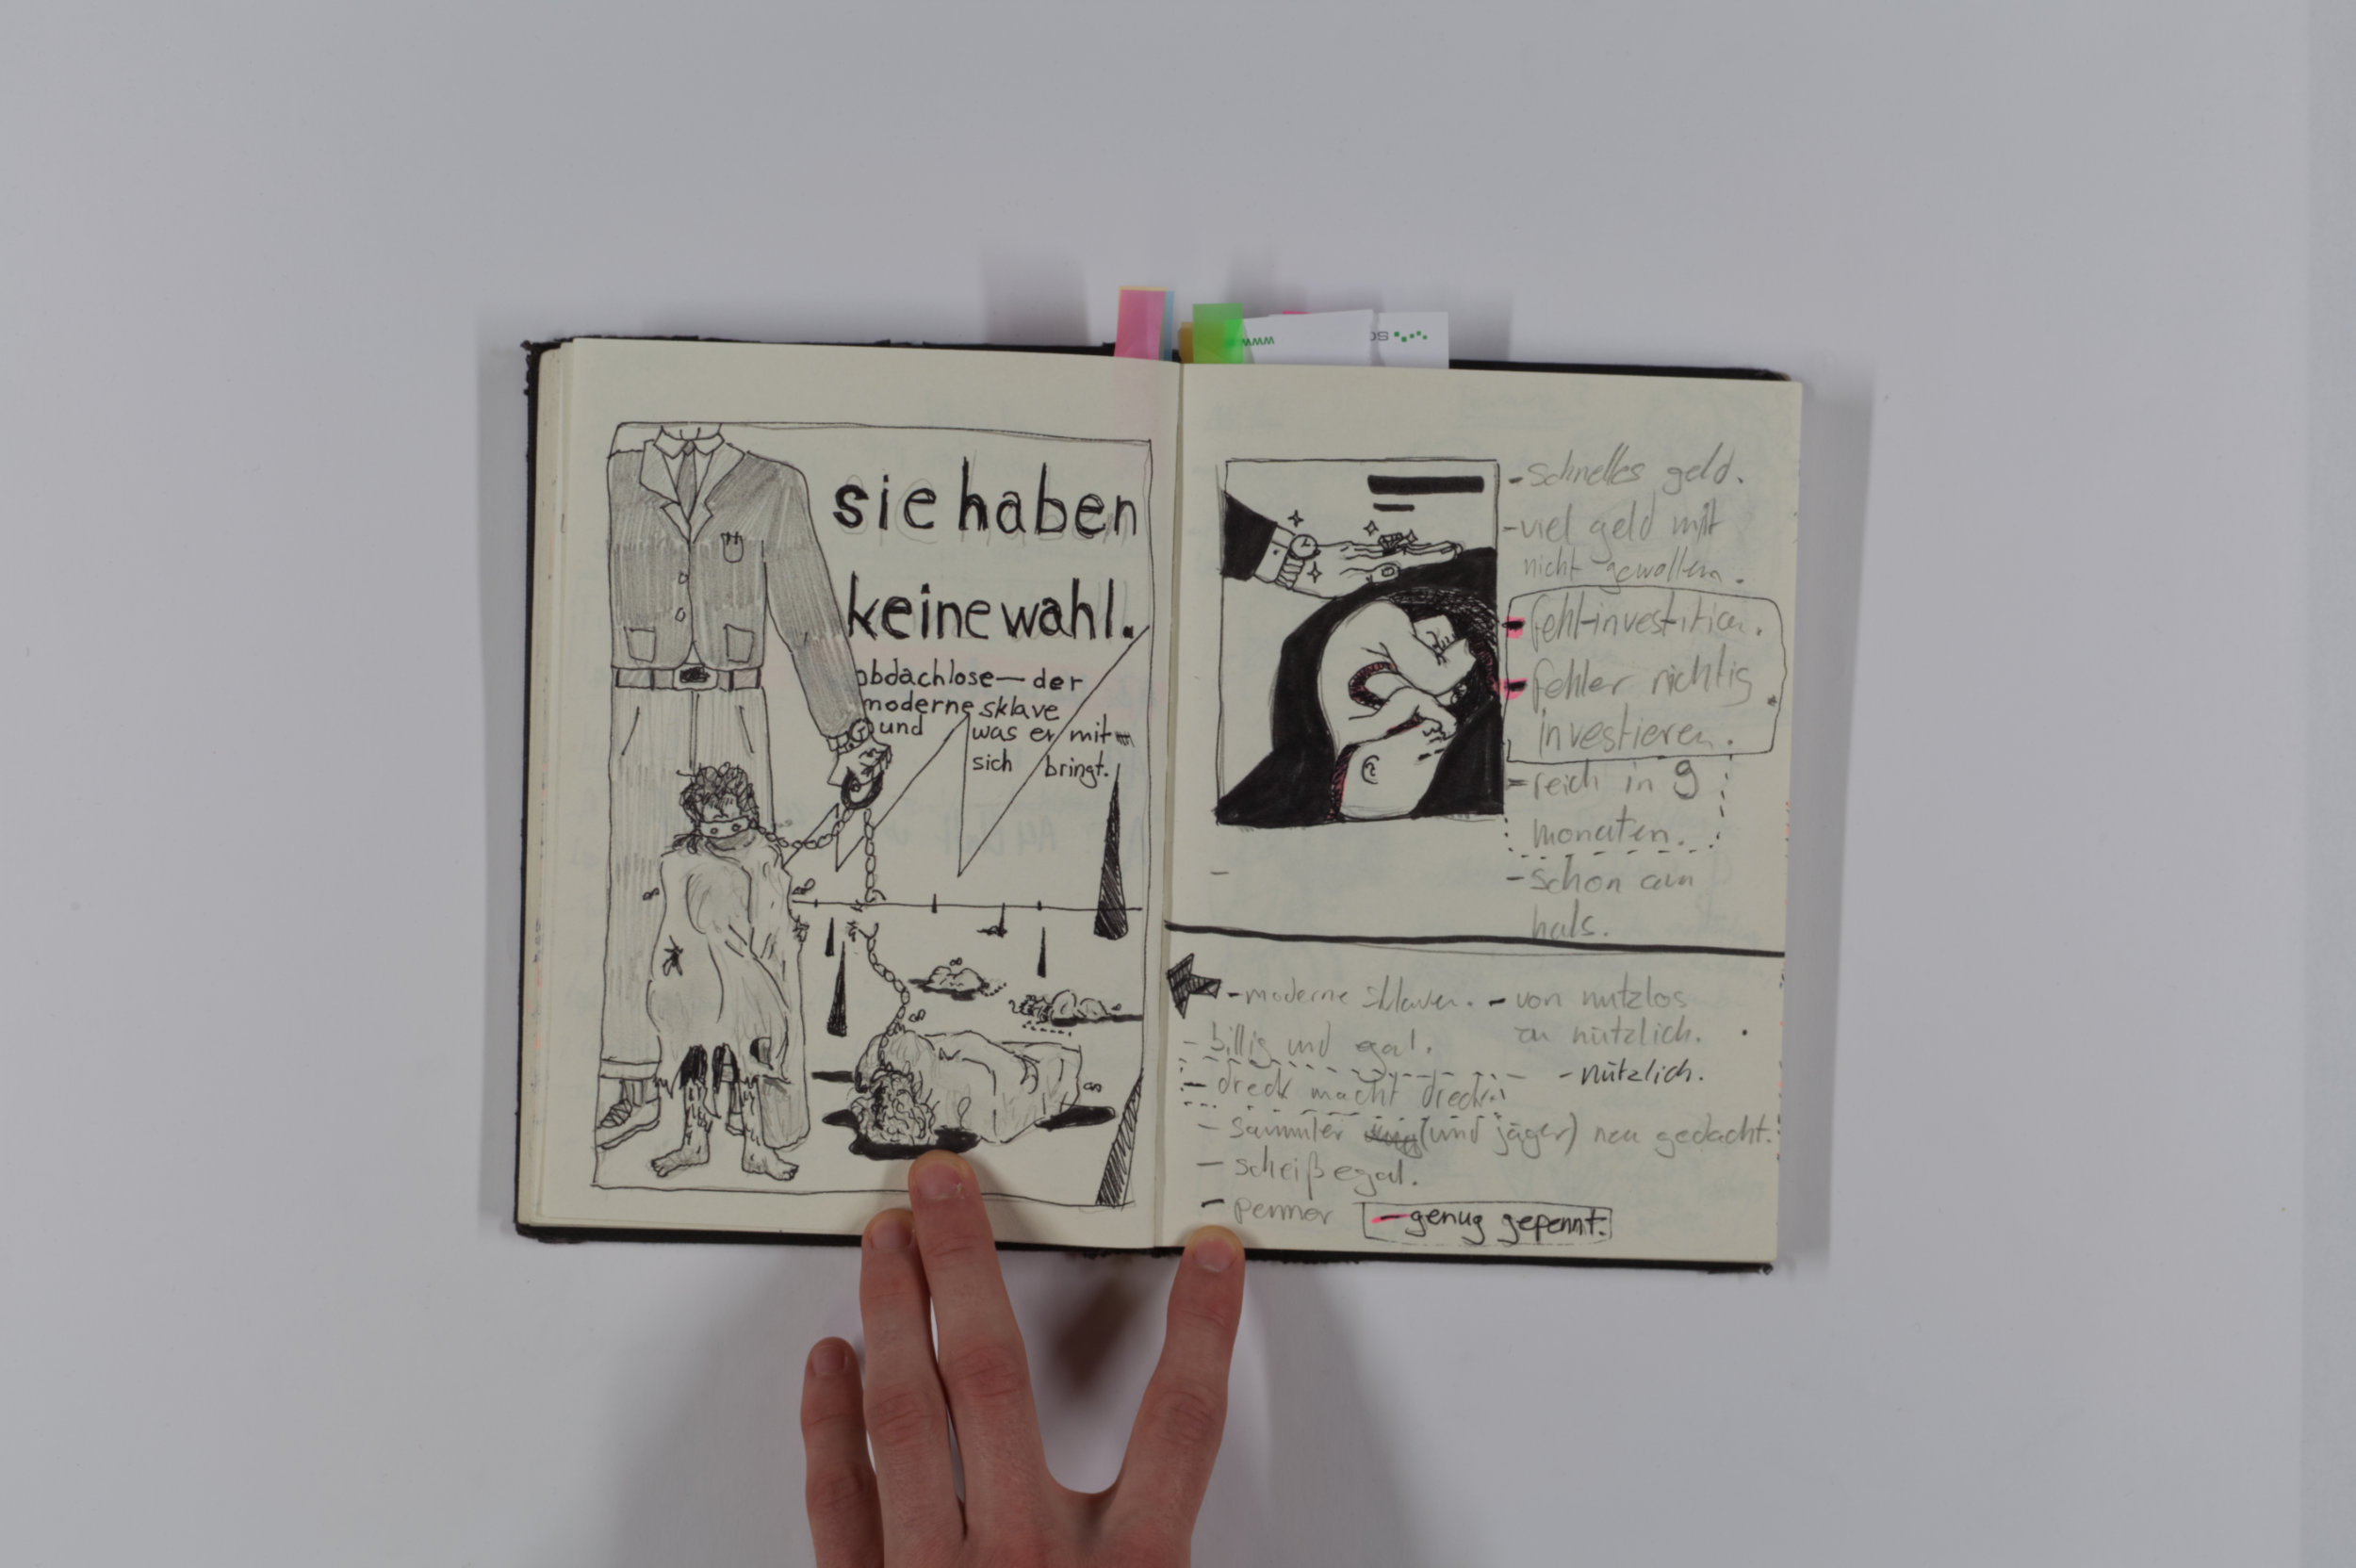 www
so
sie haben
keine wahl.
obdachlose — der
moderne sklave
und was er mit
sich bringt.
- schnelles geld.
- viel geld mit
nicht gewolltem.
- fehl-investition.
- fehler richtig
investieren.
- reich in 9
monaten.
- schon am
hals.
- moderne sklaven.
- von nutzlos
zu nützlich.
- nützlich.
- billig und egal.
- dreck macht dreck.
- sammler (und jäger) neu gedacht.
- scheißegal.
- penner
- genug gepennt.